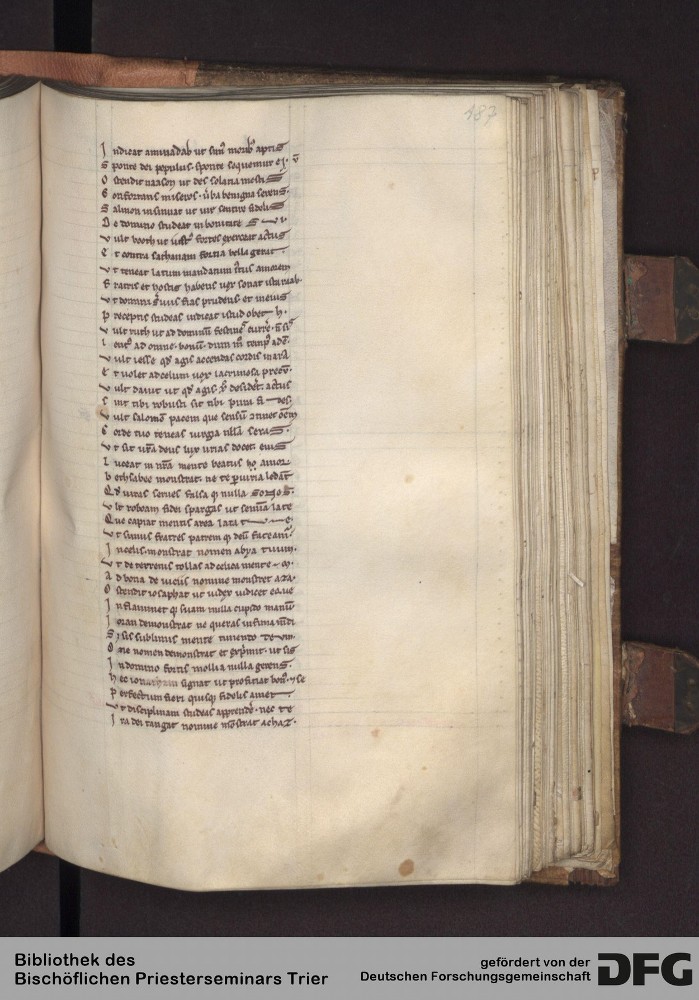 187
Indicat aminadab ut simꝰ moribꝰ aptis
Sponte dei populus sponte sequemur
Ostendit naason ut des solaria mestis
Confortans miseros uba benigna serens
Salmon insinuat ut uir sentire fidelis
De domino studeat in bonitate
Vult booth ut iustꝰ fortes exerceat actus
Et contra sathanam fortia bella gerat
Vt teneat latum mandatum amorem
Fratris et hostis habens uox sonat
Vt domini suis frās prudens et
Preceptis studeas iudicat istud obeth
Vult ruth ut ad dominum festinet currē
ad omne bonum dum temp
Vult iesse qđ agis accendas cordis in ara
Et uolet ad celum uox lacrimosa
Vult dauit ut qđ agis desideret actus
Sint tibi robusti sit tibi
Vult salomō pacem que sensū
Corde tuo teneas iurgia nulla seras
Vt sit nrā deus lux urias docet eius
Luceat in nrā mente beatus amor
Bethsabee monstrat ne te periuria ledāt
Qđ iuras serues falsa nulla
Vlt roboam fidei spargas ut semina late
Que capiat mentis area lata
Vt simus fratres patrem deū faceamꝰ
In celis monstrat nomen abya tuum
Vt de terrenis tollas ad celica mente
Ad bona de uiciis nomine monstret aza
Ostendit iosaphat ut iudex iudicet eque
Inflammet suam nulla cupido manū
Ioran demonstrat ne queras infima mūdi
Sis sublimis mente
One nomen demonstrat et exprimit ut sis
In domino fortis mollia nulla gerens
Hec ionatham signat ut proficiat
Perfectum fieri quisq fidelis amet
Vt disciplinam studeas apprendē nec te
Ira dei tangat nomine mōstrat achaz
Bibliothek des
Bischöflichen Priesterseminars Trier
gefördert von der
Deutschen Forschungsgemeinschaft
DFG